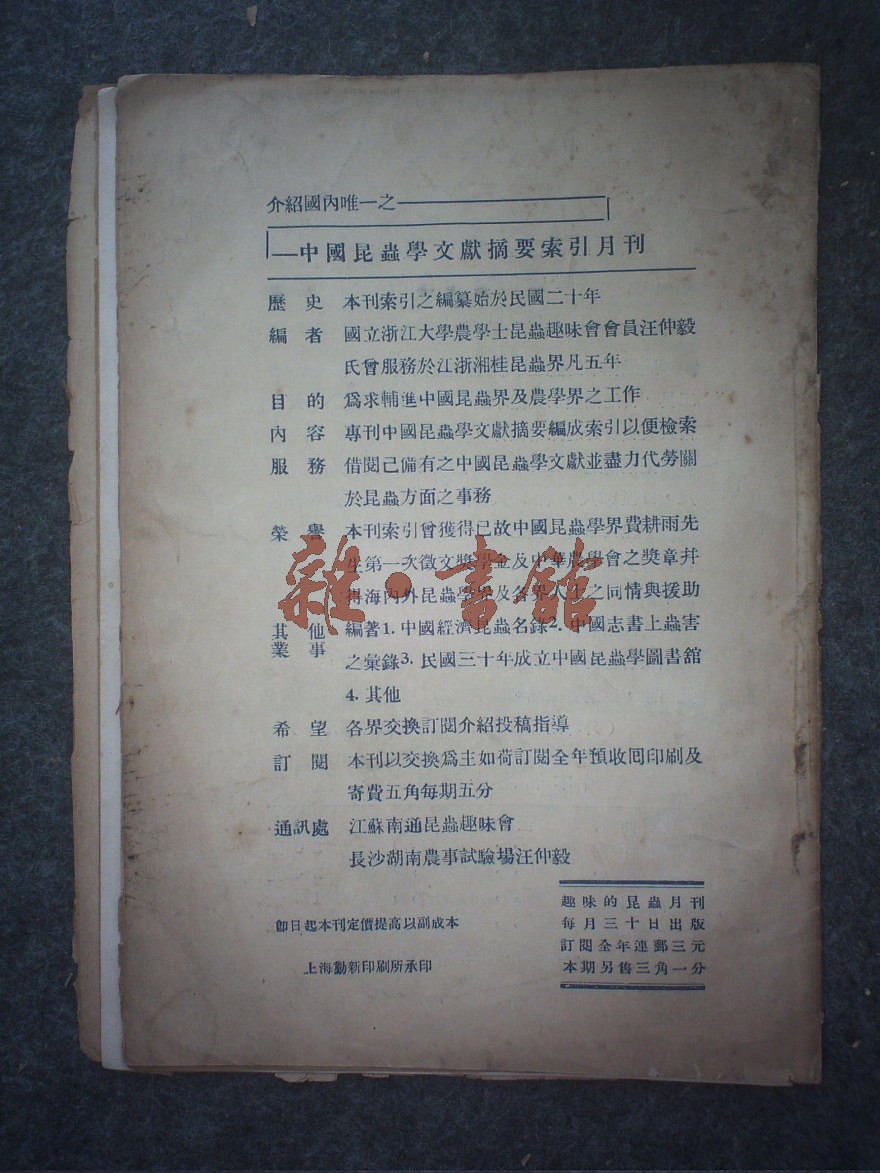 介紹國內唯一之
中國昆蟲學文獻摘要索引月刊
歷史 本刊索引之編纂始於民國二十年
編者 國立浙江大學農學士昆蟲趣味會會員汪仲毅
氏曾服務於江浙湘桂昆蟲界凡五年
目的 爲求輔進中國昆蟲界及農學界之工作
內容 專刊中國昆蟲學文獻摘要編成索引以便檢索
服務 借閱己備有之中國昆蟲學文獻並盡力代勞關
於昆蟲方面之事務
榮譽 本刊索引曾獲得已故中國昆蟲學界費耕雨先
生第一次徵文獎學金及中華農學會之獎章幷
得海內外昆蟲學界及各界人士之同情與援助
其他業事 編著1. 中國經濟昆蟲名錄2. 中國志書上蟲害
之彙錄3. 民國三十年成立中國昆蟲學圖書館
4. 其他
希望 各界交換訂閱介紹投稿指導
訂閱 本刊以交換爲主如荷訂閱全年預收囘印刷及
寄費五角每期五分
通訊處 江蘇南通昆蟲趣味會
長沙湖南農事試驗場汪仲毅
卽日起本刊定價提高以副成本
上海勤新印刷所承印
趣味的昆蟲月刊
每月三十日出版
訂閱全年連郵三元
本期另售三角一分
雜·書館